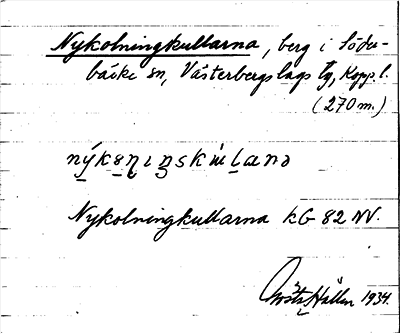 Nykolningkullarna, berg i Söder-
bärke sn, Västerbergslags tg, Kopp. l.
(270 m.)
Nykolningkullarna kG 82 NV.
Gösta Hållen 1934.